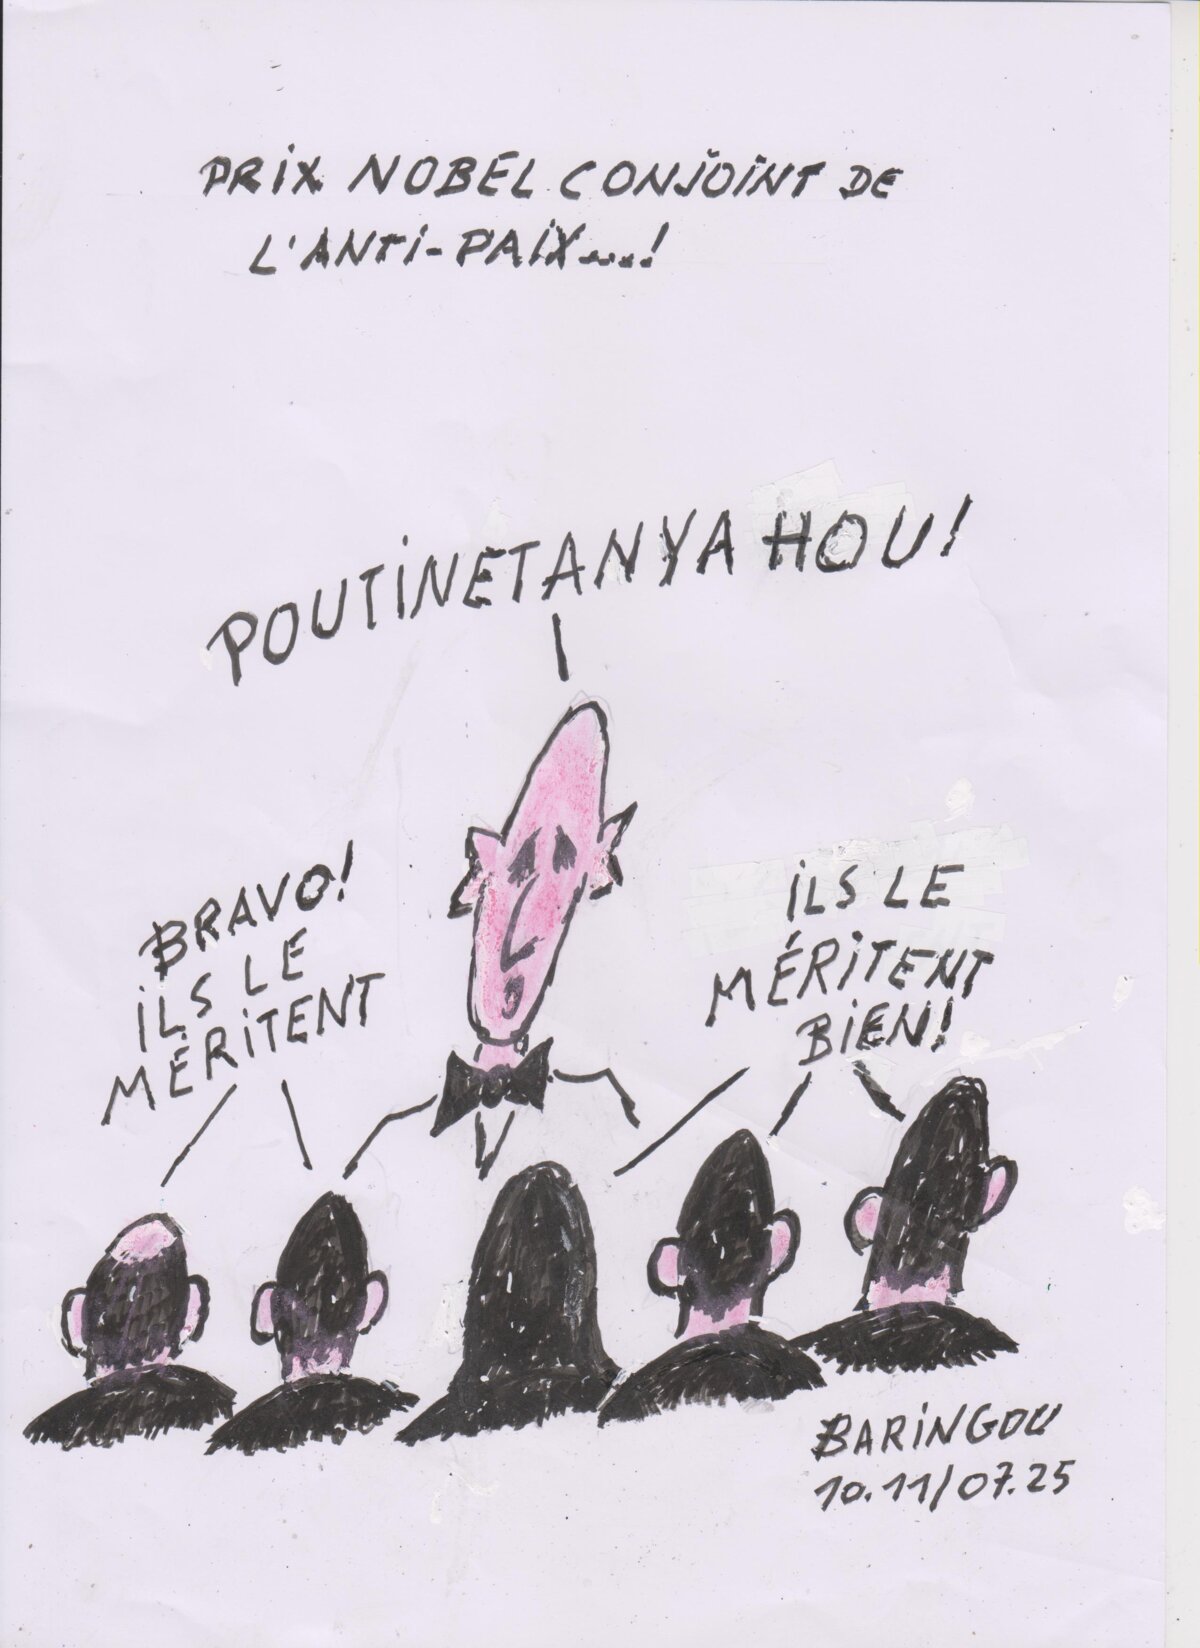 PRIX NOBEL CONJOINT DE
L'ANTI-PAIX....!
POUTINETANYAHOU!
BRAVO!
ILS LE
MÉRITENT
ILS LE
MÉRITENT
BIEN!
BARINGOU
10.11/07.25